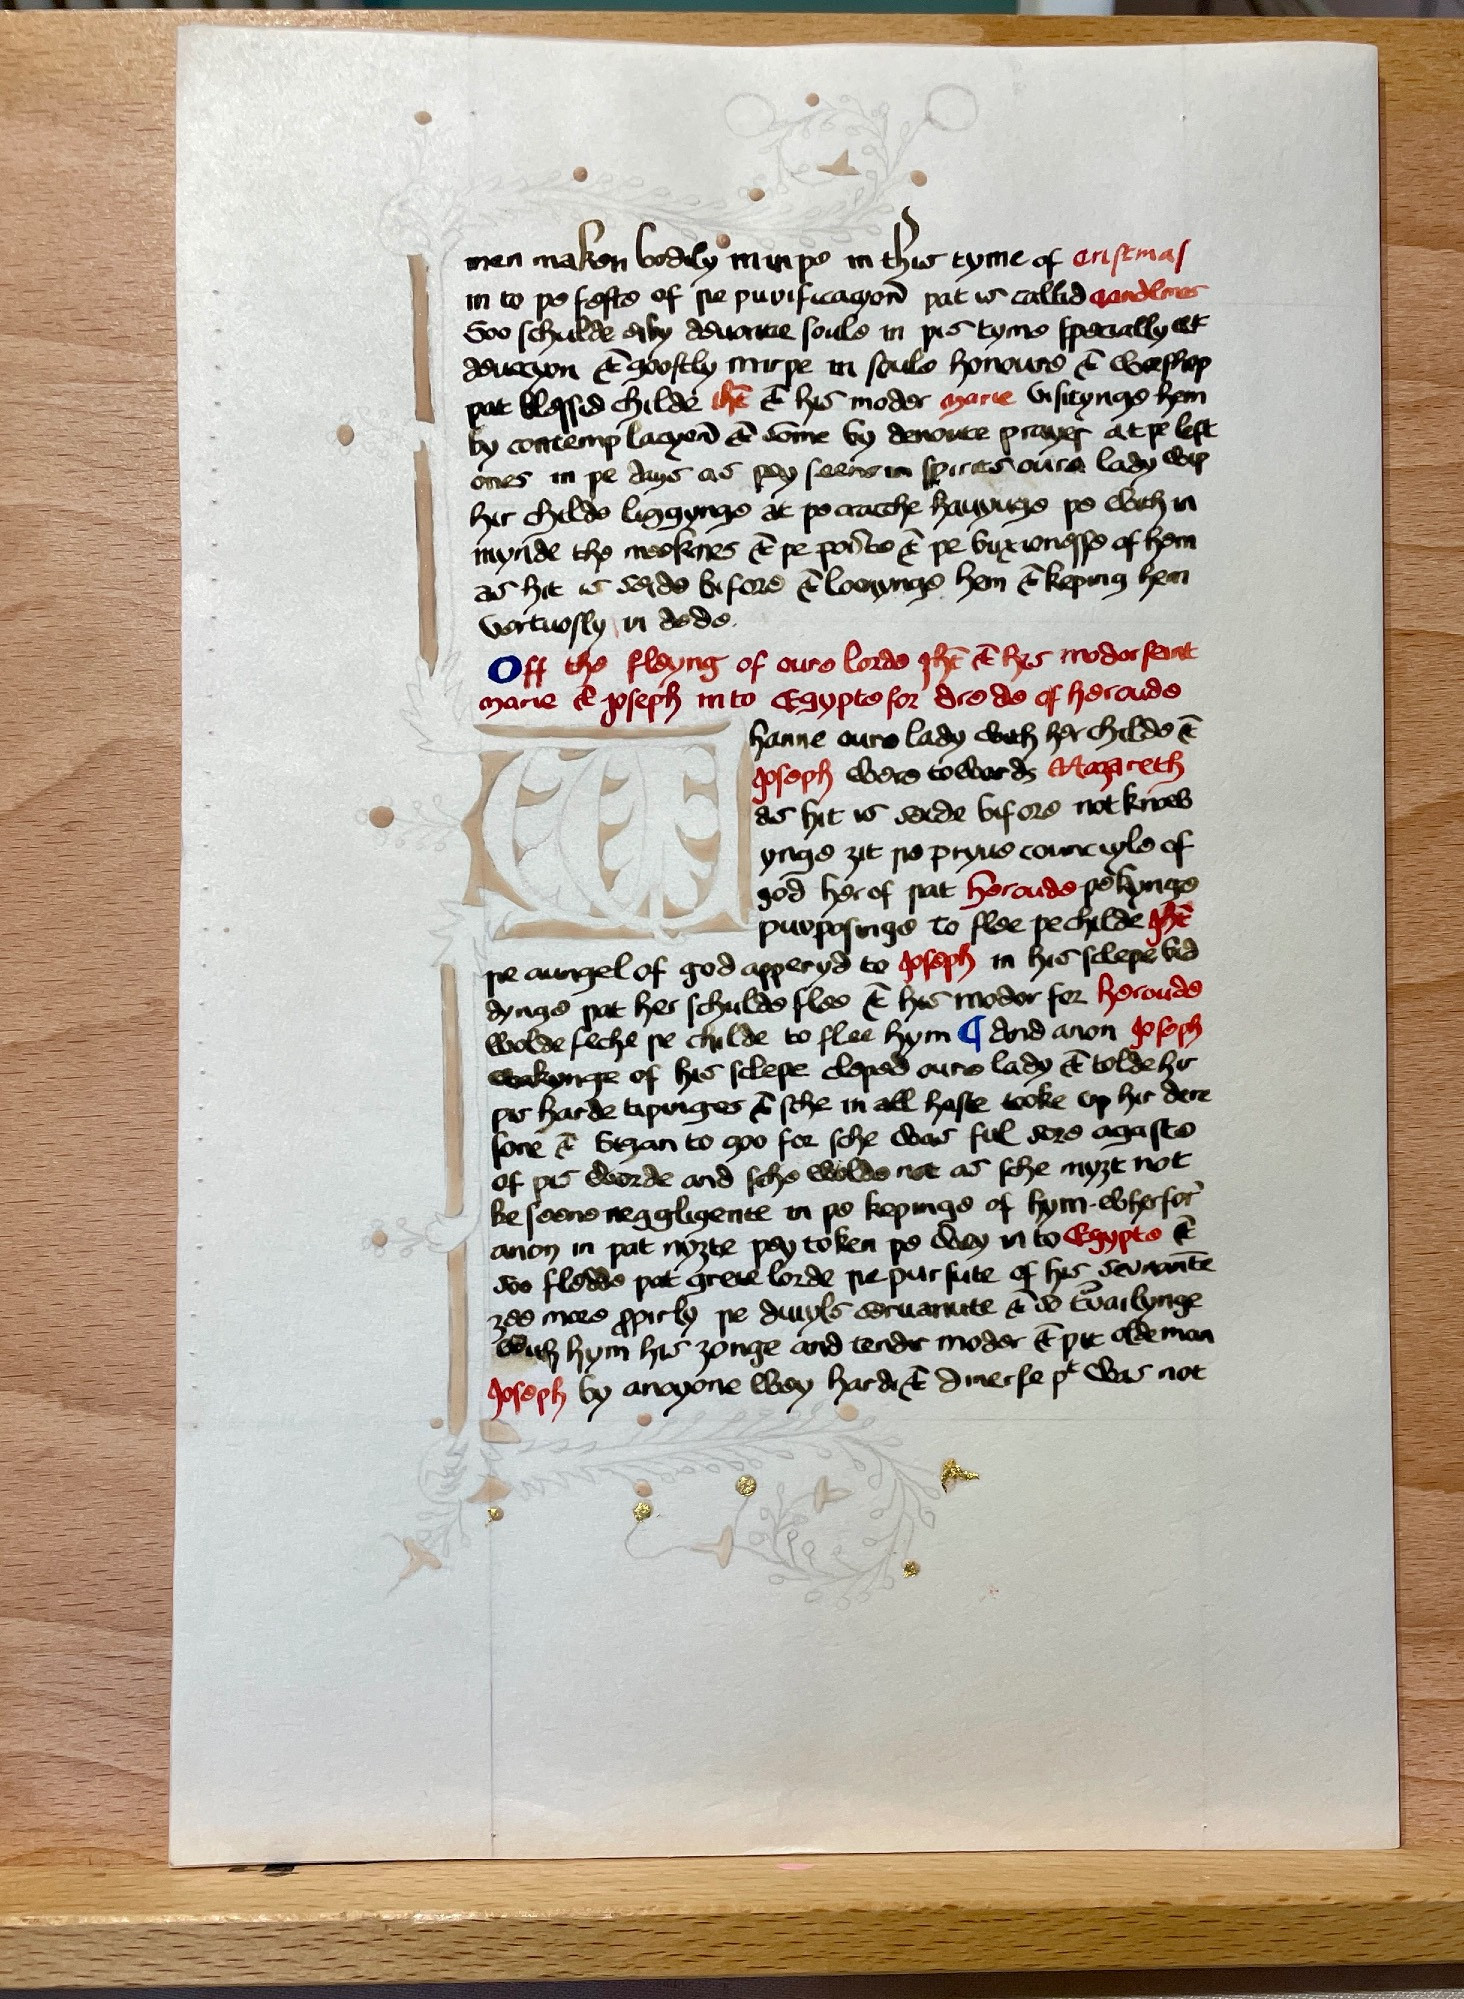 men maken bodily mirþe in this tyme of cristmas
in to þe feste of þe purificacyon̄ þat is callid candlmes
Soo schulde eny deuoute soule in þis tyme specially
deuocyon & goostly mirþe in soule honoure & worship
þat blessid childe ihē & his moder marie visitynge hem
by contemplacyon̄ & some by deuoute prayer at þe lest
ones in þe days as þey seene in spirite oure lady wiþ
her childe liggynge at þe cracche hauynge þe with in
mynde the meeknes & þe pouerte & þe buxumnesse of hem
as hit is seide bifore & louynge hem & keping hem
vertuosly in dede.
Off the fleyng of oure lorde ihē & his moder seint
marie & Joseph into Egypte for drede of heroude
hanne oure lady with her childe &
Joseph were towards Nazareth
as hit is seide bifore not know
ynge ȝit þe pryue counceyle of
god her of þat heroude þe kynge
purposinge to slee þe childe ihē
þe aungel of god apperyd to Joseph in his sclepe bid
dynge þat her schulde flee & his moder for heroude
wolde seche þe childe to slee hym ¶ And anon Joseph
wakynge of his sclepe cleped oure lady & tolde hir
þis harde tiþinges & sche in all haste tooke up hir dere
sone & bigan to goo for sche was ful sore agaste
of þis woorde and sche wolde not as sche myȝt not
be seene neggligente in þe kepinge of hym wherfor
anon in þat nyȝte þey token þe wey in to Egypte &
soo fledde þat grete lorde þe pursute of his seruante
ȝee more ꝓpirly þe duuyls seruaunte & so trauailynge
with hym his ȝonge and tendir moder & þat olde man
Joseph by anoyone wey harde & diuerse þᵗ was not